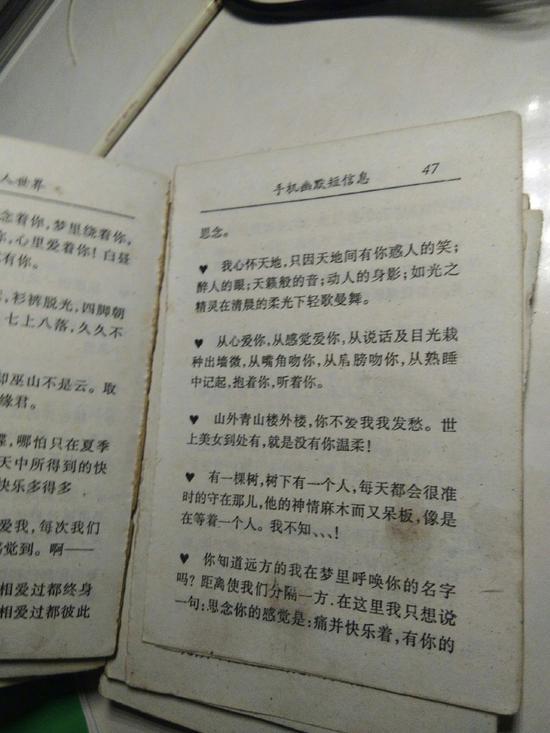 人世界
念着你，梦里绕着你，
你，心里爱着你！白昼
有你。
，衫裤脱光，四脚朝
七上八落，久久不
却巫山不是云。取
缘君。
哪怕只在夏季
天中所得到的快
快乐多得多
爱我，每次我们
感觉到。啊——
相爱过都终身
相爱过都彼此
手机幽默短信息 47
思念。
♥ 我心怀天地，只因天地间有你惑人的笑；
醉人的眼；天籁般的音；动人的身影；如光之
精灵在清晨的柔光下轻歌曼舞。
♥ 从心爱你，从感觉爱你，从说话及目光栽
种出墙微，从嘴角吻你，从肩膀吻你，从熟睡
中记起，抱着你，听着你。
♥ 山外青山楼外楼，你不爱我我发愁。世
上美女到处有，就是没有你温柔！
♥ 有一棵树，树下有一个人，每天都会很准
时的守在那儿，他的神情麻木而又呆板，像是
在等着一个人。我不知、、、！
♥ 你知道远方的我在梦里呼唤你的名字
吗？距离使我们分隔一方．在这里我只想说
一句：思念你的感觉是：痛并快乐着，有你的